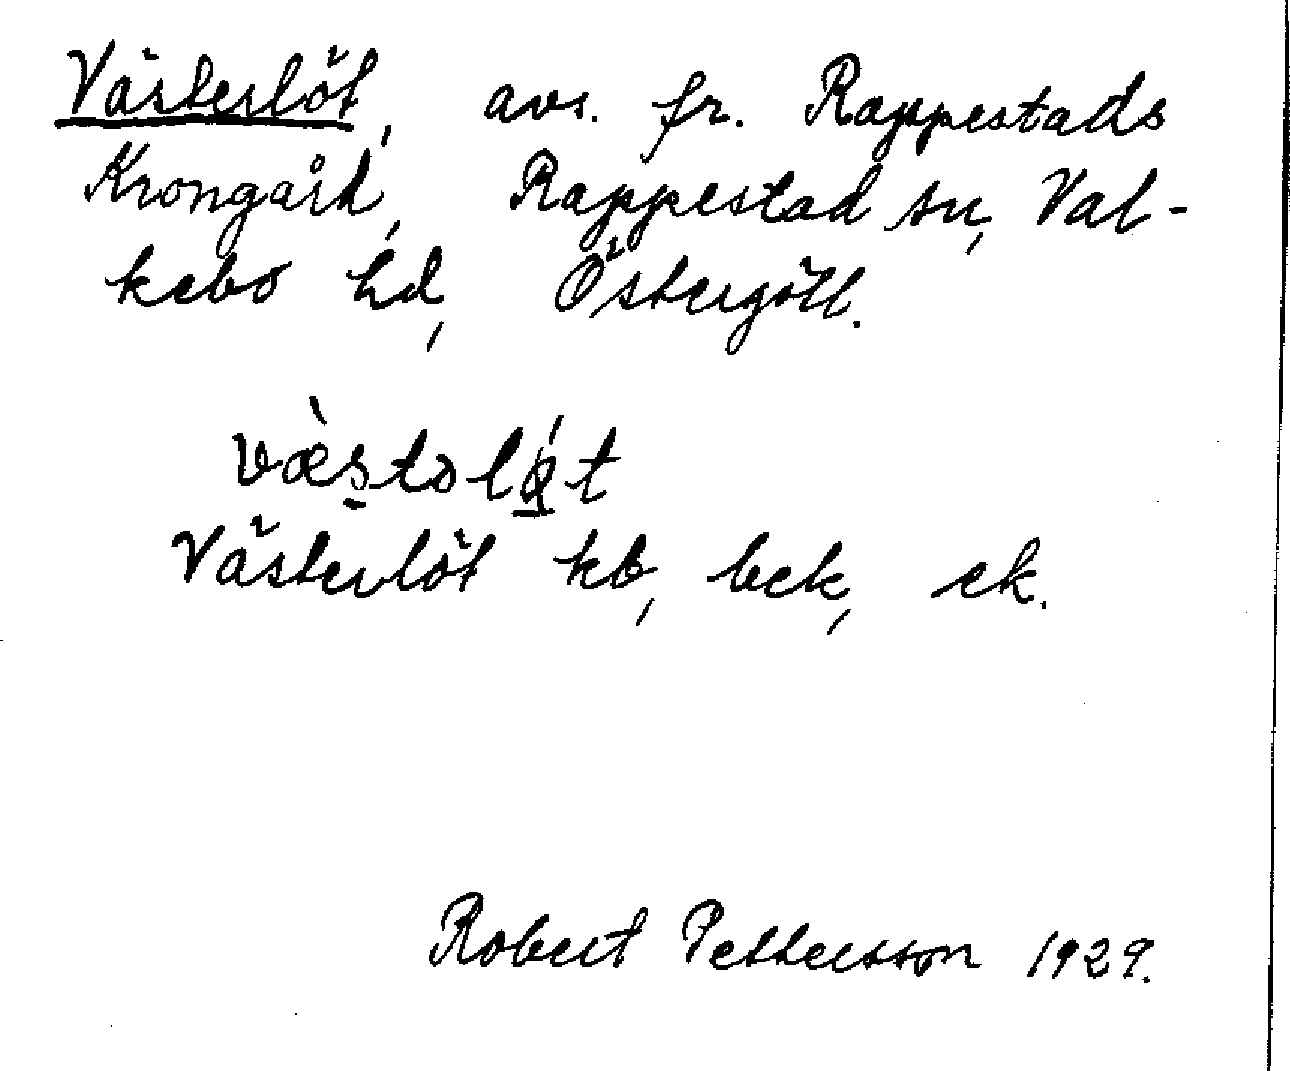 Västerlöt, avs. fr. Rappestads
Krongård, Rappestad sn, Val-
kebo hd, Östergötl.
Västerlöt kb, bek, ek.
Robert Pettersson 1929.